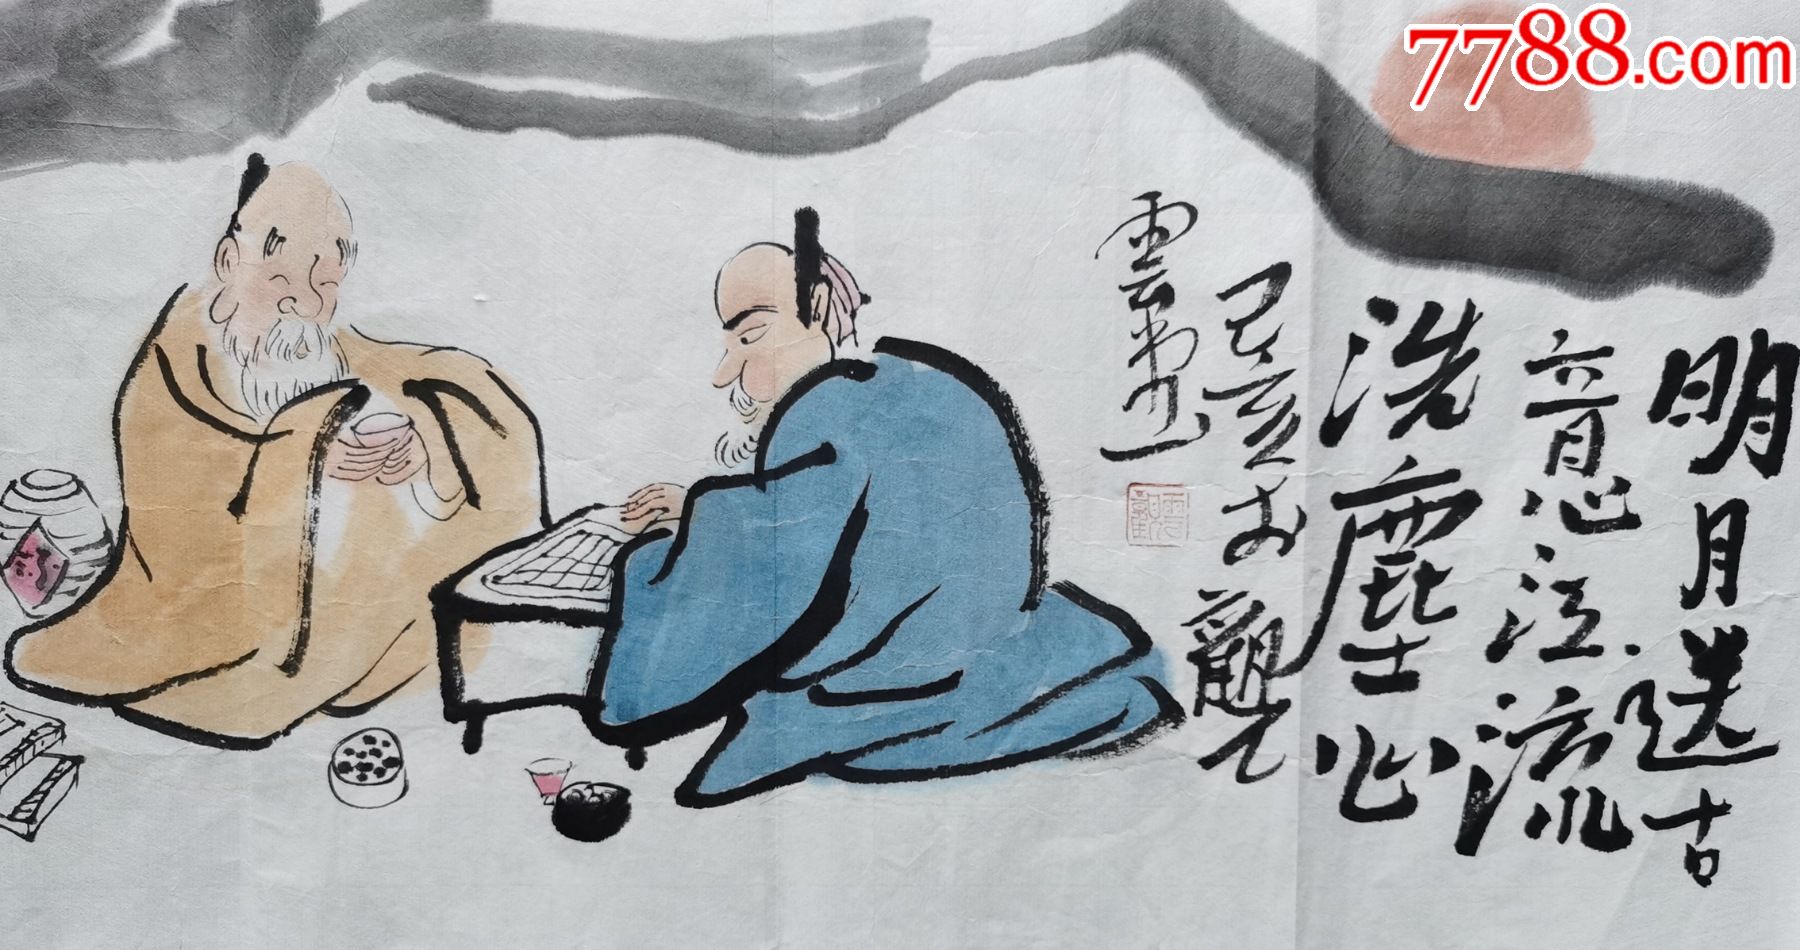 7788.com
明月送古
意江流
洗塵心
己亥於觀
雲